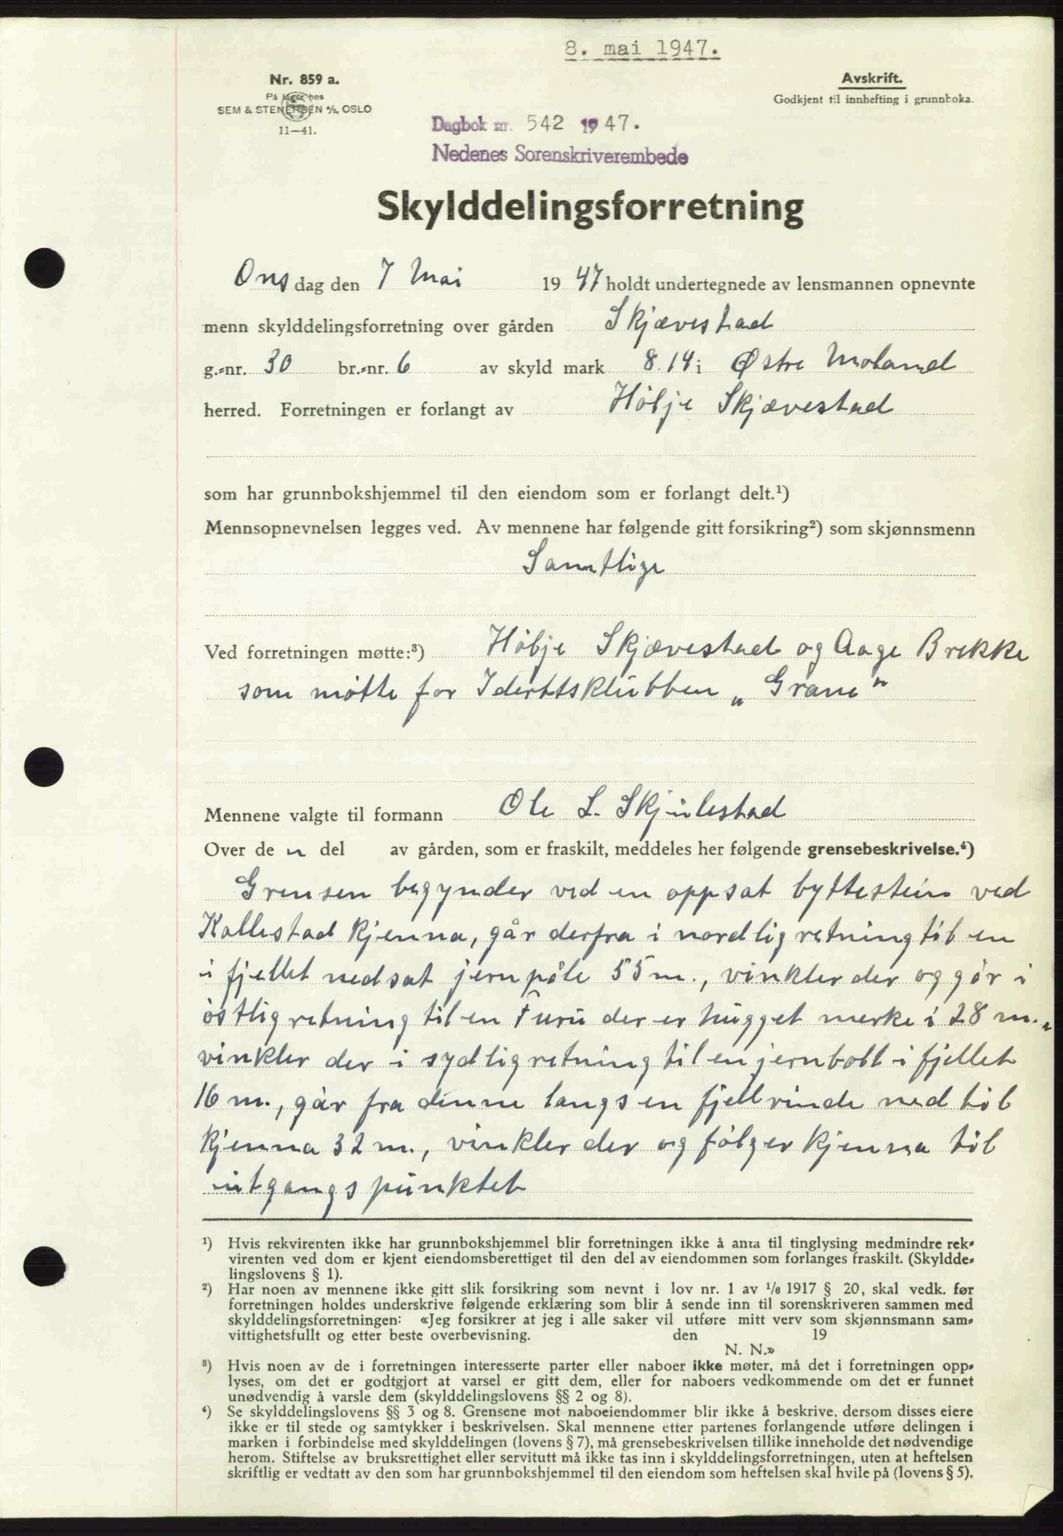 8. mai 1947.
Nr. 859 a.
På lager hos
SEM & STENERSEN A/S, OSLO
11—41.
Avskrift.
Godkjent til innhefting i grunnboka.
Dagbok nr. 542 1947.
Nedenes Sorenskriverembede
Skylddelingsforretning
Onsdag den 7 Mai 1947 holdt undertegnede av lensmannen opnevnte
menn skylddelingsforretning over gården Skjævestad
g.-nr. 30 br.-nr. 6 av skyld mark 8.14 i Østre Moland
herred. Forretningen er forlangt av Hölje Skjævestad
som har grunnbokshjemmel til den eiendom som er forlangt delt.¹)
Mennsopnevnelsen legges ved. Av mennene har følgende gitt forsikring²) som skjønnsmenn
Samtlige
Ved forretningen møtte:³) Hölje Skjævestad og Aage Brekke
som møtte for Iderttsklubben „Grane"
Mennene valgte til formann Ole L. Skjulestad
Over de n del av gården, som er fraskilt, meddeles her følgende grensebeskrivelse.⁴)
Grensen begynder ved en oppsat byttestein ved
Kallestad kjenna, går derfra i nordlig retning til en
i fjellet nedsat jernpåle 55 m., vinkler der og går i
östlig retning til en Furu der er hugget merke i 28 m.,
vinkler der i sydlig retning til en jernbolt i fjellet
16 m., går fra denne langs en fjellrinde ned til
kjenna 32 m., vinkler der og fölger kjenna til
utgangspunktet
¹) Hvis rekvirenten ikke har grunnbokshjemmel blir forretningen ikke å anta til tinglysing medmindre rek-
virenten ved dom er kjent eiendomsberettiget til den del av eiendommen som forlanges fraskilt. (Skyldde-
lingslovens § 1).
²) Har noen av mennene ikke gitt slik forsikring som nevnt i lov nr. 1 av 1/6 1917 § 20, skal vedk. før
forretningen holdes underskrive følgende erklæring som blir å sende inn til sorenskriveren sammen med
skylddelingsforretningen: «Jeg forsikrer at jeg i alle saker vil utføre mitt verv som skjønnsmann sam-
vittighetsfullt og etter beste overbevisning. den 19
N. N.»
³) Hvis noen av de i forretningen interesserte parter eller naboer ikke møter, må det i forretningen opp-
lyses, om det er godtgjort at varsel er gitt dem, eller for naboers vedkommende om det er funnet
unødvendig å varsle dem (skylddelingslovens §§ 2 og 8).
⁴) Se skylddelingslovens §§ 3 og 8. Grensene mot naboeiendommer blir ikke å beskrive, dersom disses eiere
ikke er til stede og samtykker i beskrivelsen. Skal mennene etter partenes forlangende utføre delingen i
marken i forbindelse med skylddelingen (lovens § 7), må grensebeskrivelsen tillike inneholde det nødvendige
herom. Stiftelse av bruksrettighet eller servitutt må ikke tas inn i skylddelingsforretningen, uten at heftelsen
skriftlig er vedtatt av den som har grunnbokshjemmel til den eiendom som heftelsen skal hvile på (lovens § 5).